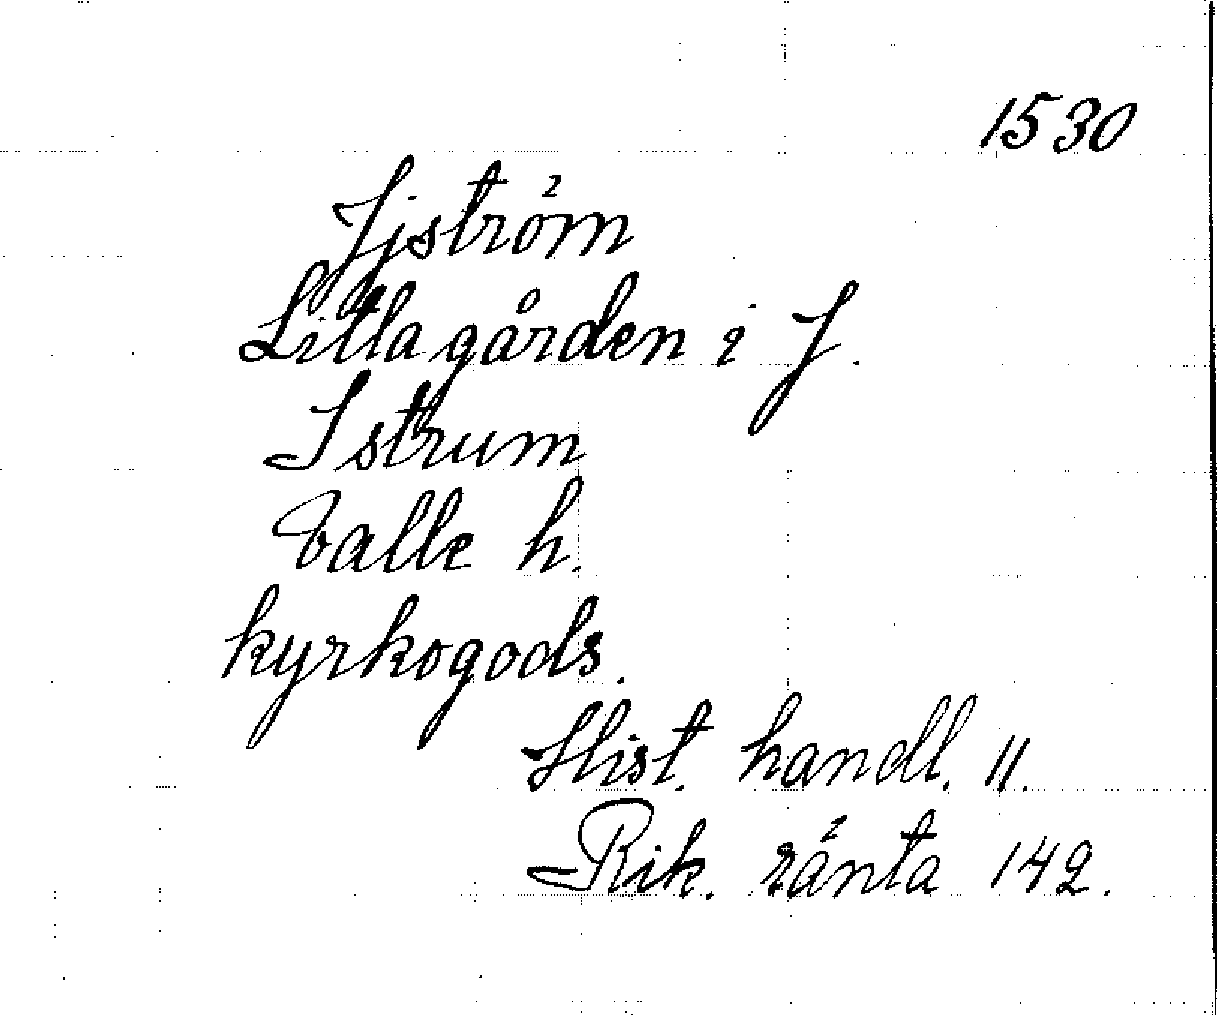 1530
Jjström
Lilla gården i J.
Istrum
Valle h.
kyrkogods.
Hist. handl. 11.
Rik. ränta 142.